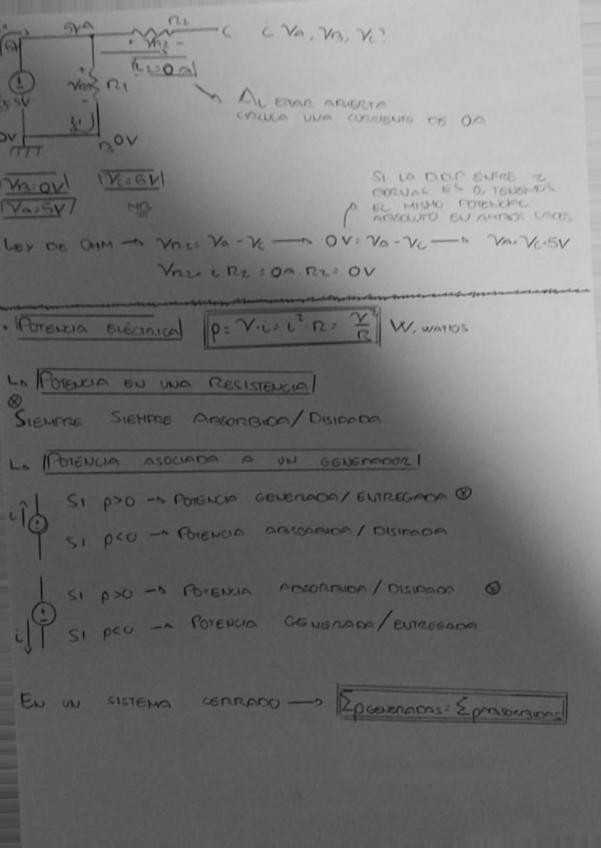 5V A R2 C ¿VA, VB, VC?
+ VR2 -
iR2=0A
5V VR1 R1 AL ESTAR ABIERTA
CIRCULA UNA CORRIENTE DE 0A
0V B 0V
VB=0V VC=5V
VA=5V
SI LA DDP ENTRE 2
BORNAS ES 0, TENEMOS
EL MISMO POTENCIAL
ABSOLUTO EN AMBOS LADOS
LEY DE OHM → VR2= VA - VC → 0V = VA - VC → VA=VC=5V
VR2= i R2 = 0A · R2 = 0V
· POTENCIA ELÉCTRICA p = V·i = i²·R = V²/R W, WATIOS
POTENCIA EN UNA RESISTENCIA
SIEMPRE SIEMPRE ABSORBIDA/DISIPADA
POTENCIA ASOCIADA A UN GENERADOR
i SI p>0 → POTENCIA GENERADA/ENTREGADA
SI p<0 → POTENCIA ABSORBIDA/DISIPADA
SI p>0 → POTENCIA ABSORBIDA/DISIPADA
i SI p<0 → POTENCIA GENERADA/ENTREGADA
EN UN SISTEMA CERRADO → Σp GENERADAS = Σp ABSORBIDAS